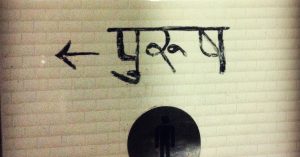 ← पुरूष